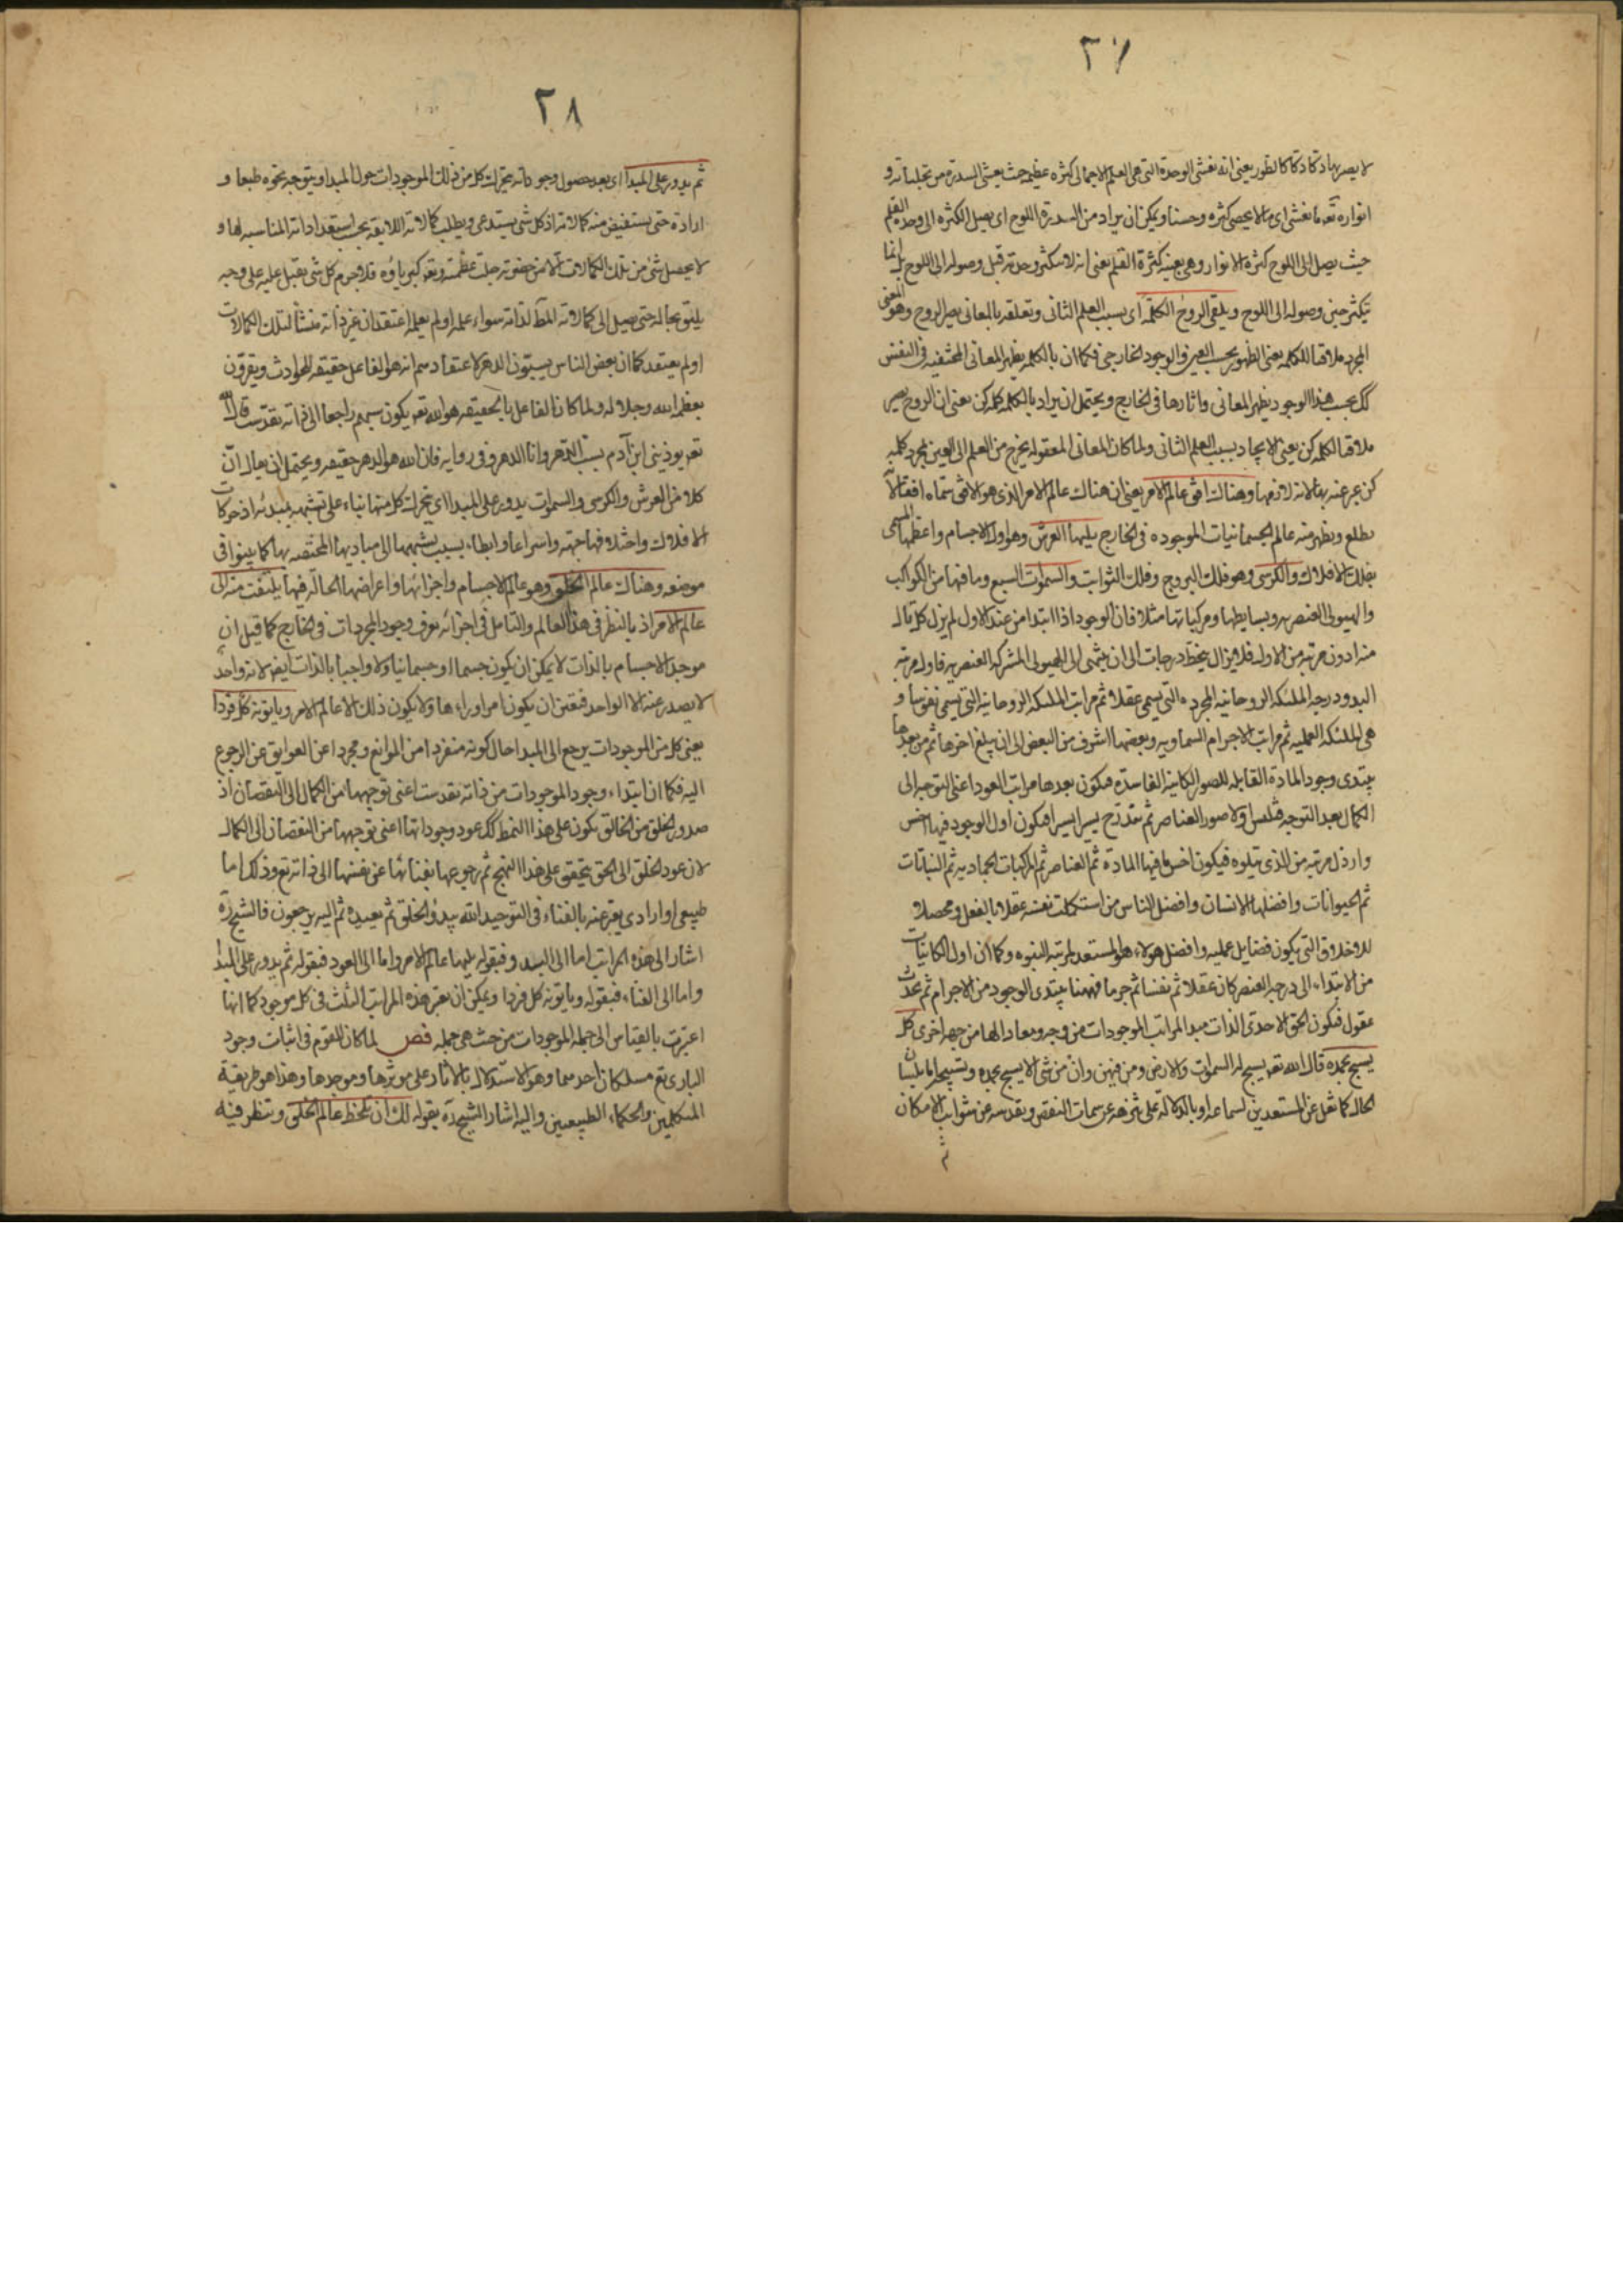 ٢٧
لا يصير بها دكا دكا كالطور يعنى انه تغشى الوحدة التى هى العلم الاجمالى كثرة عظيمة حيث يغشى السدرة من تجلياته و
انواره تعه ما تغشى اى ما لا يحصى كثرة وحسنا ويمكن ان يراد من السدرة اللوح اى يصل الكثرة الى وحدة القلم
حيث يصل الى اللوح كثرة الانوار وهى بعينه كثرة القلم يعنى انه لا متكثر وحدته قبل وصوله الى اللوح بل انما
يتكثر حين وصوله الى اللوح ويلقى الروح الكلمة اى بسبب العلم الثانى وتعلقه بالمعانى يصير الروح وهو المعنى
المجرد ملاقيا للكلمه يعنى الظهور بحسب العين والوجود الخارجى فكما ان بالكلمه يظهر المعانى المختفيه فى النفس
كك بحسب هذا الوجود يظهر المعانى واثارها فى الخارج ويحتمل ان يراد بالكلمه كلمه كن يعنى ان الروح يصير
ملاقيا لكلمه كن يعنى الايجاد بسبب العلم الثانى ولما كان المعانى المعقوله يخرج من العلم الى العين بمجرد كلمه
كن عبر عنه بها لانه لازمها وهناك افق عالم الامر يعنى ان هناك عالم الامر الذى هو الافق سماه افقا لانه
يطلع ويظهر منه عالم الجسمانيات الموجوده فى الخارج يليها العرش وهو اول الاجسام واعظمها المسمى
بفلك الافلاك والكرسى وهو فلك البروج وفلك الثوابت والسموات السبع وما فيها من الكواكب
والهيولى العنصريه وبسايطها ومركباتها مثلا فان الوجود اذا ابتدا من عند الاول لم يزل كل تال
منه ادون مرتبه من الاول فلا يزال ينحط درجات الى ان ينتهى الى الهيولى المشتركه العنصريه فاول مرتبه
البدو درجه الملئكه الروحانيه المجرده التى يسمى عقلا ثم مراتب الملئكه الروحانيه التى يسمى نفوسا و
هى الملئكه العمليه ثم مراتب الاجرام السماويه وبعضها اشرف من البعض الى ان يبلغ اخرها ثم من بعدها
يبتدى وجود المادة القابله للصور الكاينه الفاسدة فيكون بعدها مراتب العود اعنى التوجه الى
الكمال بعد التوجه فيلبس اولا صور العناصر ثم يتدرج يسيرا يسيرا فيكون اول الوجود فيها اخس
وارذل مرتبه من الذى يتلوه فيكون اخس ما فيها المادة ثم العناصر ثم المركبات الجماديه ثم النباتات
ثم الحيوانات وافضلها الانسان وافضل الناس من استكملت نفسه عقلا بالفعل ومحصلا
للاخلاق التى يكون فضايل عمليه وافضل هولاء هو المستعد لمرتبه النبوه وكما ان اول الكاينات
من الابتداء الى درجه العنصر كان عقلا ثم نفسا ثم جرما فههنا يبتدى الوجود من الاجرام ثم يحدث
عقول فيكون الحق الاحدى الذات مبدا لمراتب الموجودات من وجه ومعادا لها من جهه اخرى كل
يسبح بحمده قال الله تعه يسبح له السموات والارض ومن فيهن وان من شئ الا يسبح بحمده وتسبيحها اما بلسان
الحال كما نقل عن المستعدين لسماعه او بالدلالة على تنزهه عن سمات النقص وتقدسه عن شوائب الامكان
ثم
٢٨
ثم يدور على المبدا اى بعد حصول وجوداته يتحرك كل من ذلك الموجودات حول المبدا ويتوجه نحوه طبعا و
ارادة حتى يستفيض منه كمالاته اذ كل شئ يستدعى ويطلب كمالاته اللايقه بحسب استعداداته المناسبه لها و
لا يحصل شئ من تلك الكمالات الا من حضرته جلت عظمته وتعه كبرياؤه فلا جرم كل شئ يقبل عليه على وجه
يليق بحاله حتى يصل الى كمالاته الملآ لذاته سواء علمه او لم يعلمه اعتقد ان غير ذاته منشأ لتلك الكمالات
او لم يعتقد كما ان بعض الناس يسبون الدهر لاعتقادهم انه هو الفاعل حقيقه للحوادث ويقرون
بعظم الله وجلاله ولما كان الفاعل بالحقيقه هو الله تعه يكون سبهم راجعا الى ذاته تقدست قال الله
تعه يوذينى ابن آدم يسب الدهر وانا الدهر وفى روايه فان الله هو الدهر حقيقه ويحتمل ان يقال ان
كلا من العرش والكرسى والسموات يدور على المبدا اى يتحرك كل منها بناء على تشبهه بمبدئه اذ حركات
الافلاك واختلافها جهة واسراعا وابطاء بسبب تشبهها الى مباديها المختصه بها كما بينوا فى
موضعه وهناك عالم الخلق وهو عالم الاجسام واجزائها واعراضها الحالّه فيها يلتفت منه الى
عالم الامر اذ بالنظر فى هذا العالم والتامل فى اجزائه يعرف وجود المجردات فى الخارج كما قيل ان
موجد الاجسام بالذات لا يمكن ان يكون جسما او جسمانيا ولا واجبا بالذات ايضا لانه واحد
لا يصدر عنه الا الواحد فتعين ان يكون امرا وراءها ولا يكون ذلك الا عالم الامر وياتونه كل فردا
يعنى كل من الموجودات يرجع الى المبدا حال كونه منفردا من الموانع ومجردا عن العوايق عن الرجوع
اليه فكما ان ابتداء وجود الموجودات من ذاته تقدست اعنى توجهها من الكمال الى النقصان اذ
صدور الخلق من الخالق يكون على هذا النمط كك عود وجوداتها اعنى توجهها من النقصان الى الكمال
لان عود الخلق الى الحق يتحقق على هذا النهج ثم رجوعها بفنائها عن نفسها الى ذاته تع وذلك اما
طبيعى او ارادى يعبر عنه بالفناء فى التوحيد الله يبدؤ الخلق ثم يعيده ثم اليه يرجعون فالشيخ ره
اشار الى هذه المراتب اما الى البدو فبقوله يليها عالم الامر واما الى العود فبقوله ثم يدور على المبدا
واما الى الفناء فبقوله وياتونه كل فردا ويمكن ان يعتبر هذه المراتب الثلث فى كل موجود كما انها
اعتبرت بالقياس الى جمله الموجودات من حيث هى جمله فص لما كان للقوم فى اثبات وجود
البارى تع مسلكان احدهما وهو الاستدلال بالاثار على موثرها وموجدها وهذا هو طريقة
المتكلمين والحكماء الطبيعيين واليه اشار الشيخ ره بقوله لك ان تلحظ عالم الخلق وتنظر فيه